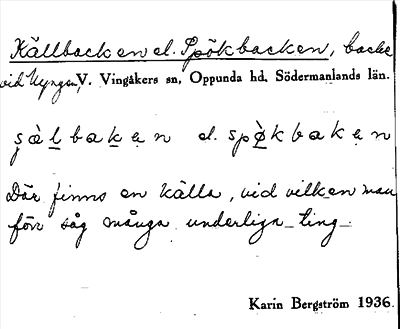 Källbacken el. Spökbacken, backe
vid Nyngen, V. Vingåkers sn, Oppunda hd, Södermanlands län.
ʂä̀lbakɛn el. spø̀kbakɛn
Där finns en källa, vid vilken man
förr såg många underliga ting.
Karin Bergström 1936.